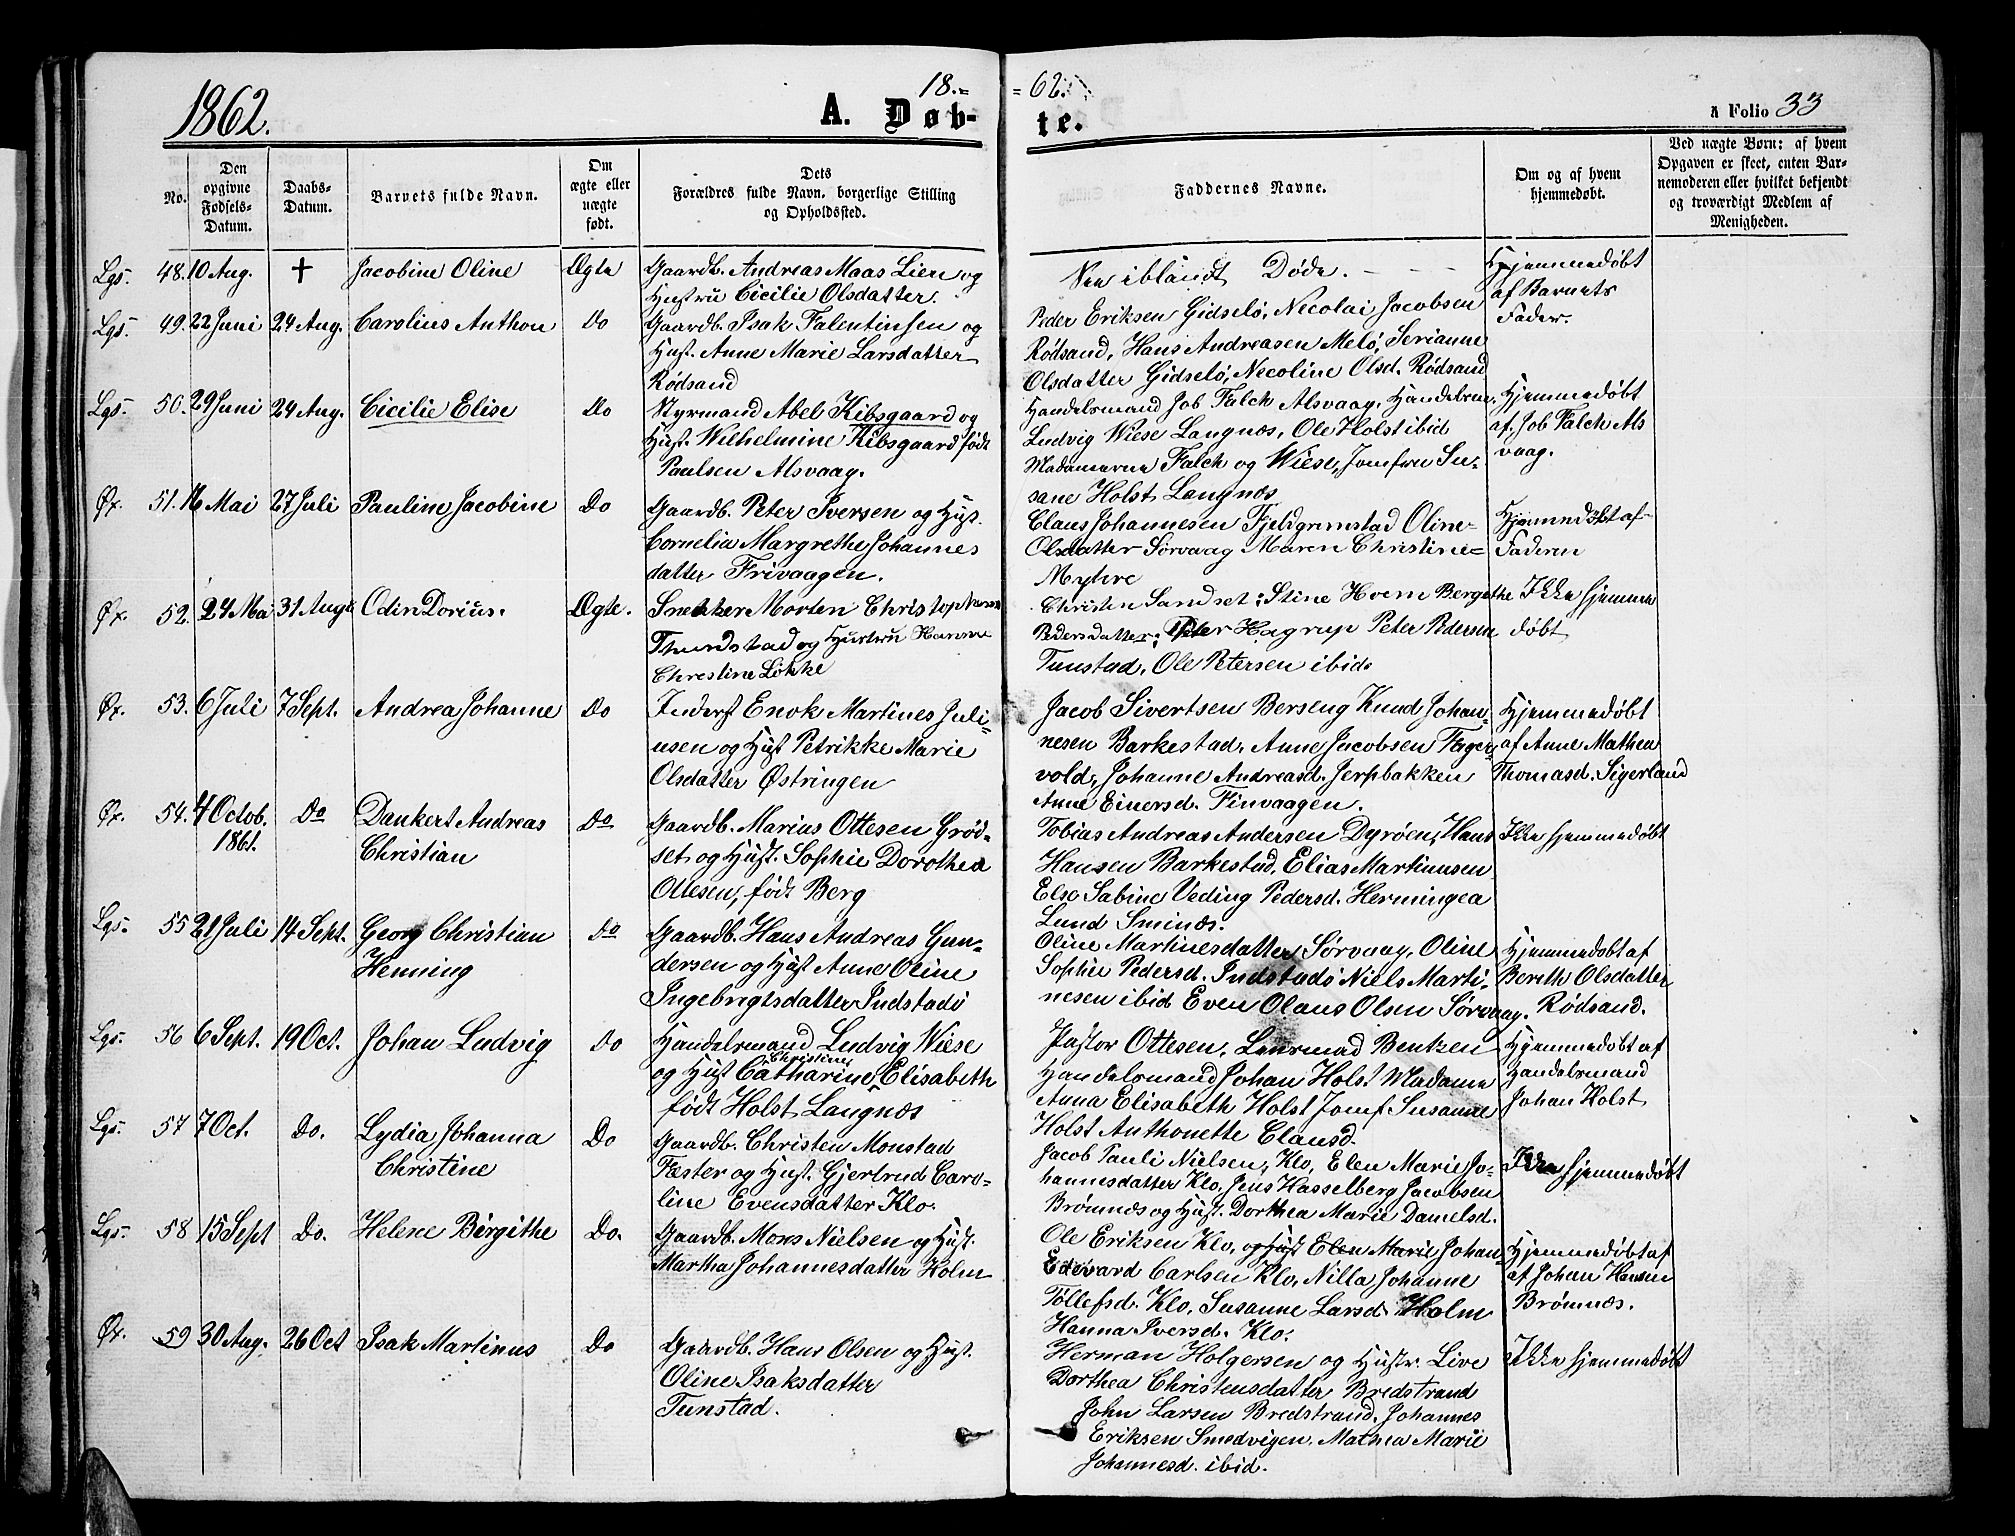 1862.
18.=
= 62.
A. Døb-
te.
A Folio 33
No.
Den
opgivne
Fødsels-
Datum.
Daabs-
Datum.
Barnets fulde Navn.
Om
ægte eller
uægte
født.
Dets
Forældres fulde Navn, borgerlige Stilling
og Opholdssted.
Faddernes Navne.
Om og af hvem
hjemmedøbt.
Ved uægte Børn: af hvem
Opgaven er skeet, enten Bar-
nemoderen eller hvilket bekjendt
og troværdigt Medlem af
Menigheden.
Lgs. 48. 10 Aug. † Jacobine Oline Ægte
Gaardb. Andreas Maas Lien og
Hustru Cicilie Olsdatter.
See iblandt Døde.
Hjemmedøbt
af Barnets
Fader.
Lgs. 49. 22 Juni 24 Aug. Carolius Anthon Do
Gaardb. Isak Falentinsen og
Hust. Anne Marie Larsdatter
Rödsand
Peder Eriksen Gidselö, Nicolai Jacobsen
Rödsand, Hans Andreasen Melö, Serianne
Olsdatter Gidselö, Necoline Olsd. Rödsand
Lgs. 50. 29 Juni 24 Aug. Cicilie Elise Do
Styrmand Abel Kibsgaard og
Hust. Wilhelmine Kibsgaard født
Paulsen Alsvaag.
Handelsmand Job Falch Alsvaag, Handelsm.
Ludvig Wiese Langnæs, Ole Holst ibid
Madamerne Falch og Wiese, Jomfru Su-
sane Holst Langnæs
Hjemmedøbt
af Job Falch Als
vaag.
Øx. 51. 16 Mai 27 Juli Pauline Jacobine Do
Gaardb. Peter Iversen og Hust.
Cornelia Margrethe Johannes
datter Frivaagen.
Claus Johannesen Fjeldgrimstad Oline
Olsdatter Sørvaag Maren Christine
Myhre
Hjemmedøbt af
Faderen
Øx. 52. 24 Mai 31 Aug. Odin Dorius. Ægte.
Snekker Morten Christophersen
Thundstad og Hustru Hanne
Christine Lökke
Christen Sandset; Stine Hvem Bergithe
Pedersdatter; Peter Hagrup Peter Pedersen
Tunstad, Ole Petersen ibid
Ikke hjemme
døbt
Øx. 53. 6 Juli 7 Sept. Andrea Johanne Do
Inderst Enok Martines Juli-
usen og Hust Petrikke Marie
Olsdatter Østringen
Jacob Sivertsen Berseng Knud Johan-
nesen Barkestad, Anne Jacobsen Fager-
vold, Johanne Andreasd. Jerpbakken
Anne Einersd. Finvaagen.
Hjemmedøbt
af Anne Mathea
Thomasd. Sigerland
Øx. 54. 4 Octob.
1861. Do Dankert Andreas
Christian Do
Gaardb. Marius Ottesen Grød-
set og Hust. Sophie Dorothea
Ottesen, født Berg
Tobias Andreas Andersen Dyrøen, Hans
Hansen Barkestad, Elias Martinusen
Else Sabine Veding Pedersd. Hermingea
Lund Sminæs.
Ikke hjemmedøbt
Lgs. 55 21 Juli 14 Sept. Georg Christian
Henning Do
Gaardb. Hans Andreas Gun-
dersen og Hust Anne Oline
Ingebrigtsdatter Indstadö
Oline Martinesdatter Sørvaag, Oline
Sophie Pedersd. Indstadö Niels Marti-
nesen ibid Even Olaus Olsen Sørvaag.
Hjemmedøbt af
Berith Olsdatter
Rødsand.
Lgs. 56 6 Sept. 19 Oct. Johan Ludvig Do
Handelsmand Ludvig Wiese
Christine
og Hust Catharine Elisabeth
født Holst Langnæs
Pastor Ottesen, Lensmand Bentzen
Handelsmand Johan Holst Madame
Anna Elisabeth Holst Jomf Susanne
Holst Anthonette Clausd.
Hjemmedøbt af
Handelsmand
Johan Holst
Lgs. 57 7 Oct. Do. Lydia Johanna
Christine Do
Gaardb. Christen Monstad
Fæster og Hust. Gjertrud Caro-
line Evensdatter Klo.
Jacob Pauli Nielsen, Klo, Elen Marie Jo-
hannesdatter Klo, Jens Hasselberg Jacobsen
Brømnæs og Hust. Dorthea Marie Danielsd.
Ikke hjemmedøbt
Lgs. 58 15 Sept Do. Helene Birgithe Do.
Gaardb. Mons Nielsen og Hust.
Martha Johannesdatter Holm
Ole Eriksen Klo, og Hust Elen Marie Johan
Edevard Carlsen Klo, Nilla Johanne
Tøllefsd. Klo, Susanne Larsd. Holm
Hanna Iversd. Klo.
Hjemmedøbt af
af Johan Hansen
Brømnæs.
Øx. 59 30 Aug. 26 Oct Isak Martinus Do
Gaardb. Hans Olsen og Hust.
Oline Isaksdatter
Tunstad.
Herman Holgersen og Hustr. Live
Dorthea Christensdatter Bredstrand
John Larsen Bredstrand. Johannes
Eriksen Smedvigen, Mathea Marie
Johannesd. ibid.
Ikke hjemmedøbt